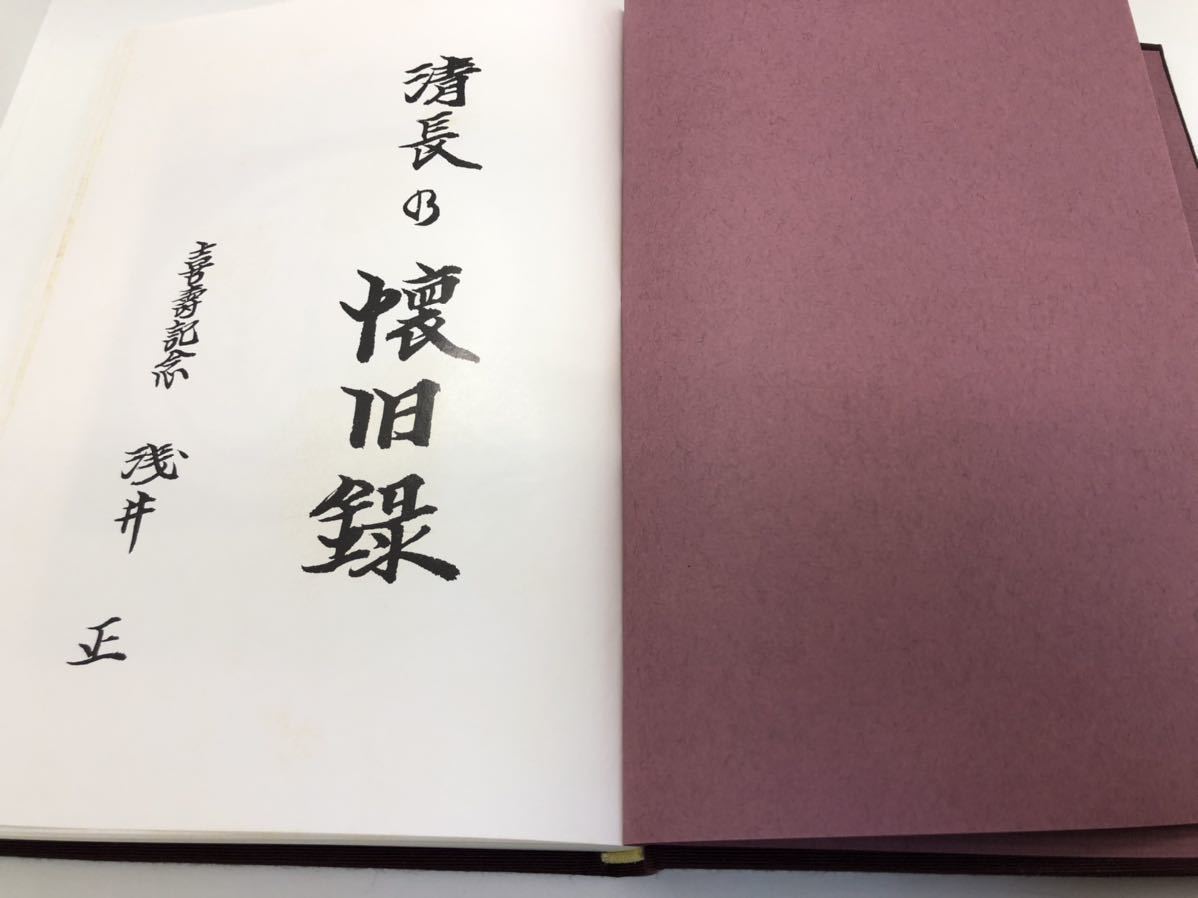 清長の懐旧録
喜寿記念 浅井 正